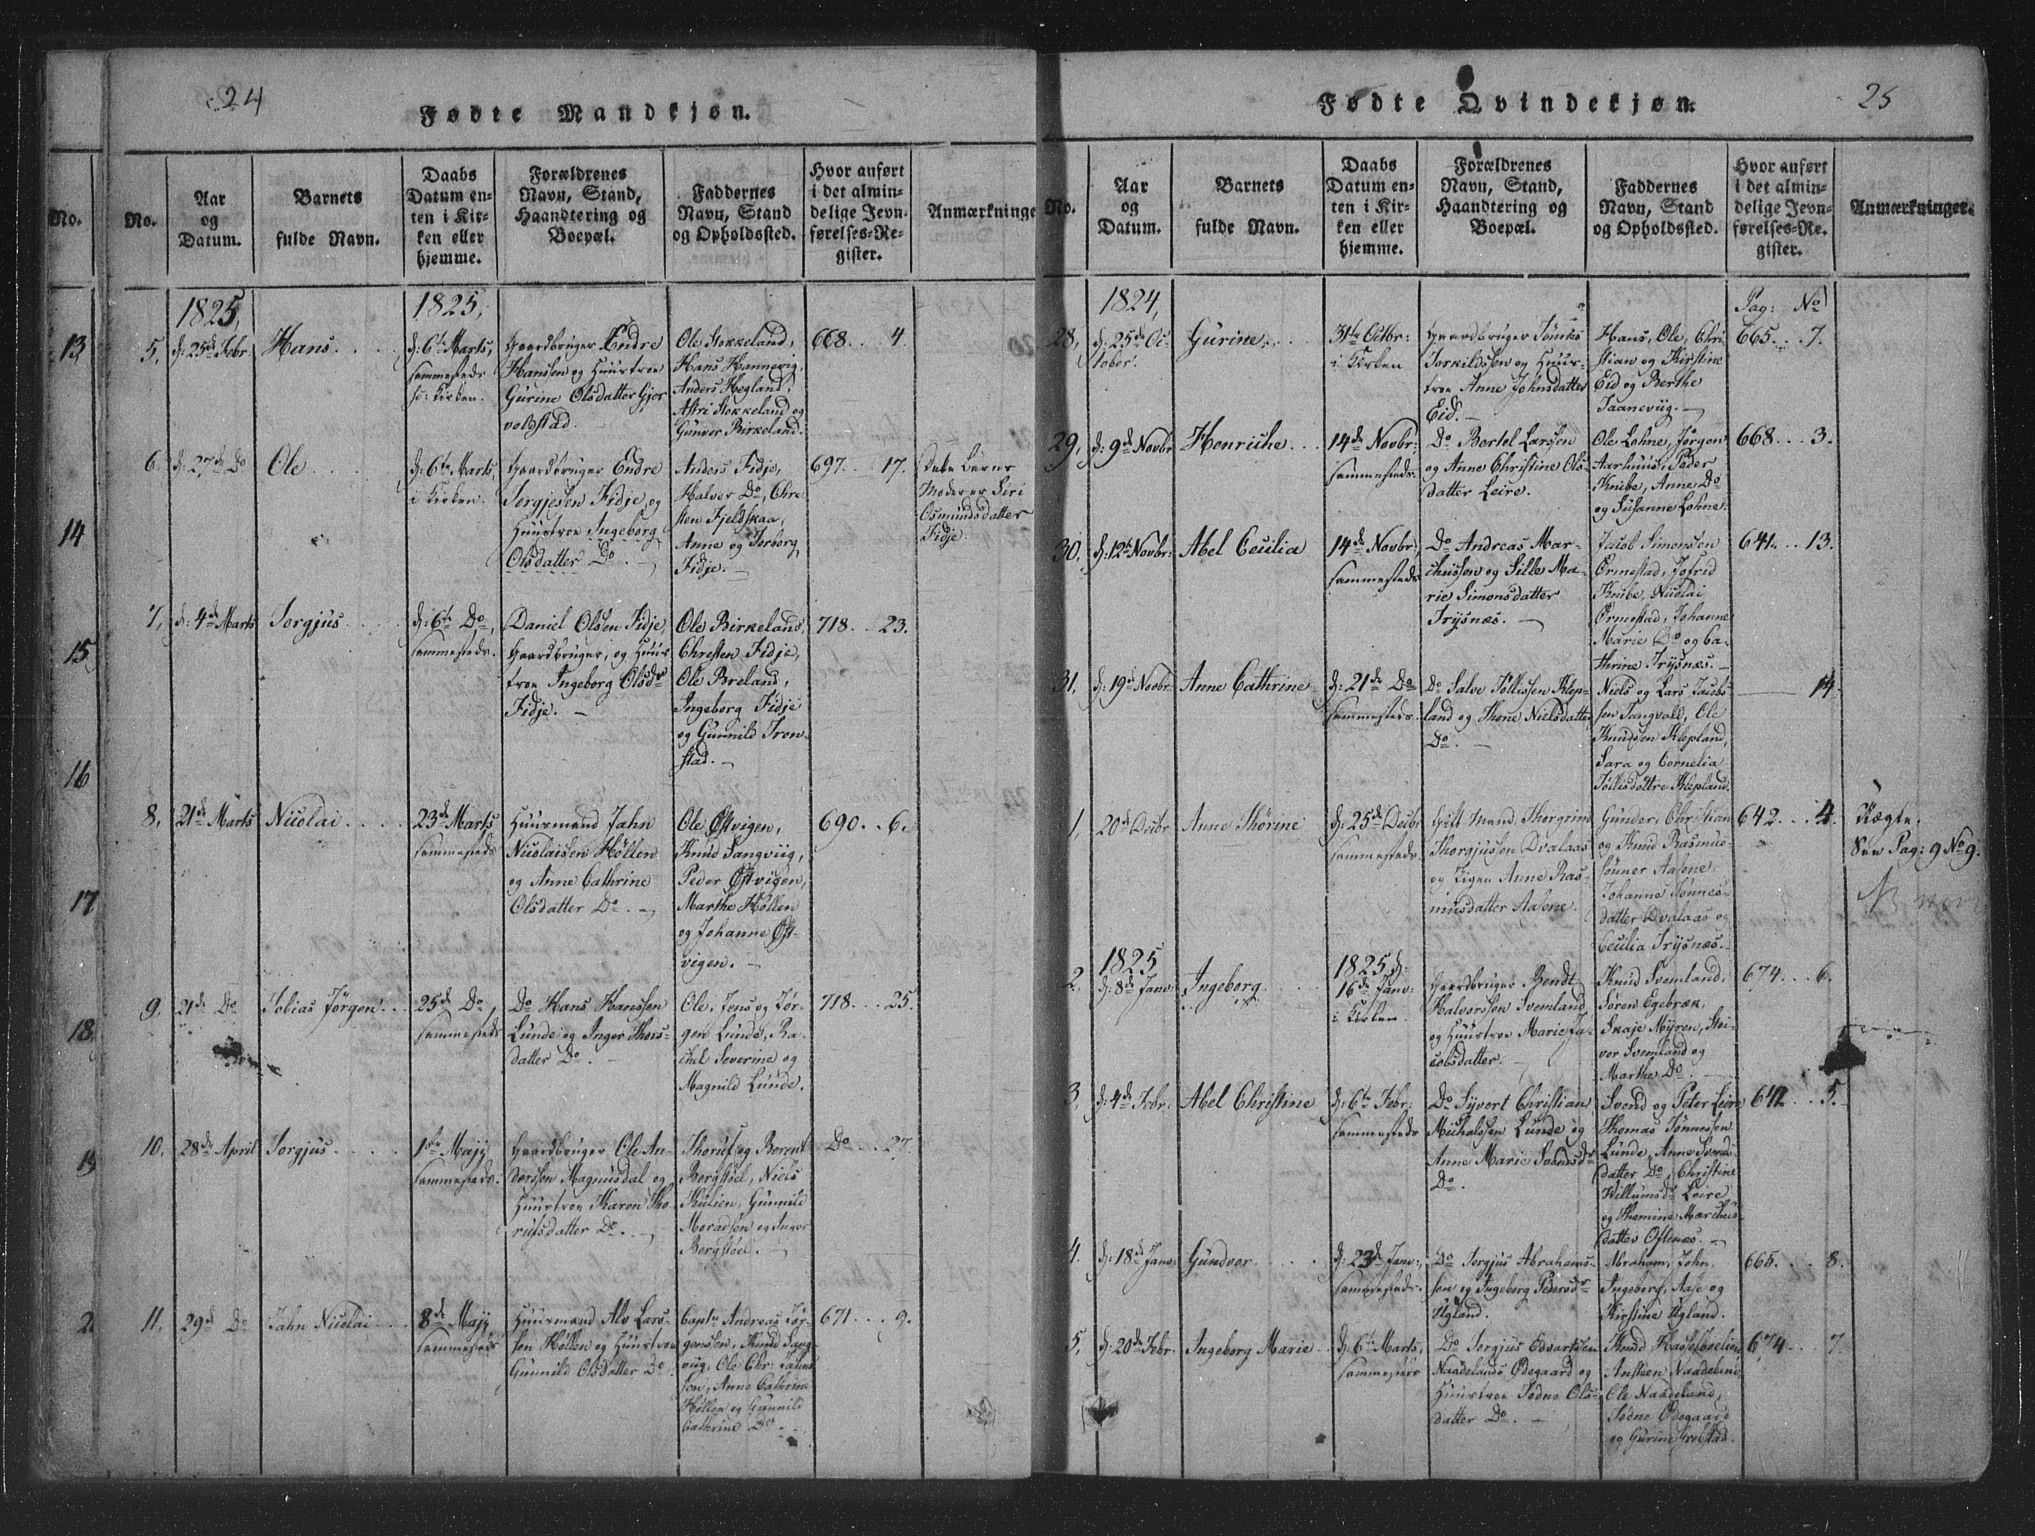 24
Fødte Mandkjøn.
No.
No.
Aar
og
Datum.
Barnets
fulde Navn.
Daabs
Datum en-
ten i Kir-
ken eller
hjemme.
Forældrenes
Navn, Stand,
Haandtering og
Boepæl.
Faddernes
Navn, Stand
og Opholdssted.
Hvor anført
i det almin-
delige Jevn-
førelses-Re-
gister.
Anmærkninge
13
14
15
16
17
18
19
2
1825,
1825,
5, d: 25de Febr. Hans.
d: 6te Marts,
sammesteds
i Kirken.
Gaardbruger Endre
Hanssen og Huustroe
Gurine Olsdatter Gjer
voldstad.
Ole Stokkeland,
Hans Hannevig,
Anders Hegland,
Astri Stokkeland og
Gunvor Birkeland.
668. 4.
6. d: 27de Do Ole
d: 6te Marts,
i Kirken.
Gaardbruger Endre
Torgjesen Fidje, og
Huustroe Ingeborg
Olsdatter Do.
Anders Fidje,
Halvor Do, Chre
sten Fjeldskaa,
Anne og Torborg
Fidje.
697. 17.
Dette Barns
Moder er Siri
Osmundsdatter
Fidje.
7, d: 4de Marts Torgjus
d: 6te Do,
sammesteds.
Daniel Olsen Fidje,
Gaardbruger, og Huus
troe Ingeborg Olsdr
Fidje.
Ole Birkeland,
Chresten Fidje,
Ole Breland,
Ingeborg Fidje
og Gunnild Tron
stad.
718. 23.
8, 21de Marts Nicolai
23de Marts
sammesteds
Huusmand Jahn
Nicolaisen Høllen
og Anne Cathrine
Olsdatter Do.
Ole Østvigen,
Knud Langviig,
Peder Østvigen,
Marthe Høllen
og Johanne Øst-
vigen.
690. 6.
9. 21de Do Tobias Jörgen
25de Do,
sammesteds
Do Hans Hanssen
Lunde og Inger Thors-
datter Do.
Ole, Jens og Jör-
gen Lunde, Ra-
chel Severine og
Magnild Lunde.
718. 25.
10. 28de April Torgjus
1ste Majy
sammesteds.
Gaardbruger Ole An-
dersen Magnusdal og
Huustroe Karen Tho-
rufsdatter Do.
Thoruf og Berent
Bergstöel, Niels
Kulien, Gunnild
og Inger
Bergstöel.
Do 27.
11. 29de Do Jahn Nicolai
8de Majy
sammesteds
Huusmand Alv Lars-
sen Høllen og Huustroe
Gunnild Olsdatter Do
Captn Andreas Jör-
gensen, Knud Lang
viig, Ole Chr: Jahns
sen, Anne Cathrine
Høllen og Gunnild
Cathrine Do.
671. 9.
25
Fødte Qvindekjøn.
No.
Aar
og
Datum.
Barnets
fulde Navn.
Daabs
Datum en-
ten i Kir-
ken eller
hjemme.
Forældrenes
Navn, Stand,
Haandtering og
Boepæl.
Faddernes
Navn, Stand
og Opholdssted.
Hvor anført
i det almin-
delige Jevn-
førelses-Re-
gister.
Anmærkninger.
1824,
Pag: No
28, d: 25de Oc
tober. Gurine.
31te Octbr:
i Kirken
Gaardbruger Tönnes
Torkildssen og Huus-
troe Anne Johnsdatter
Eid.
Hans, Ole, Chri
stian og Kirstine
Eid og Berthe
Taaneviig.
665. 7.
29, d: 9de Novbr Henriche
14de Novbr:
sammesteds.
Do Bertel Larssen
og Anne Christine Ols
datter Leire.
Ole Lohne, Jörgen
Aarhuus, Peder
Knibe, Anne Do
og Susanne Lohne.
668. 3.
30. d: 12te Novbr: Abel Cecilia
14de Novbr,
sammesteds.
Do Andreas Mar-
chussen og Sille Ma-
rie Simonsdatter
Trysnæs.
Jacob Simonssen
Ormestad, Jofrid
Knibe, Nicolai
Ormestad, Johanne
Marie Do og Ca-
thrine Trysnæs.
641. 13.
31. d: 19de Novbr: Anne Cathrine
d: 21de Do
sammesteds.
Do Salve Tollissen Klep-
land og Thone Nielsdatter
Do.
Niels og Lars Jacobs
sen Tangvald, Ole
Knudssen Klepland,
Sara og Cornelia
Tollisdöttre Klepland.
14.
1, 20de Decbr Anne Thorine
d: 25de Decbr
sammesteds.
Gift Mand, Thorgrim
Thorgjussen Dvalaas
og Pigen Anne Ras-
musdatter Aasene.
Gunder, Christian
og Knud Rasmus-
sönner Aasene
Johanne Tönnes-
datter Dvalaas og
Cecilia Trysnæs.
642. 4.
Uægte.
See Pag: 9 No 9.
1825
2. d: 8de Janv: Ingeborg.
1825 d:
16de Janv:
i Kirken.
Gaardbruger Bendt
Halvorssen Svemland
og Huustroe Marie Ja-
cobsdatter.
Knud Svemland,
Sören Egebræk,
Skaje Myren, Stei-
vor Svemland og
Marthe Do.
674. 6.
3. d: 4de Febr: Abel Christine
d: 6te Febr:
sammesteds
Do Syvert Christian
Michalssen Lunde og
Anne Marie Svendsdr
Do.
Svend og Peter Leire
Thomas Tönnessen
Lunde, Anne Svends
datter Do, Christine
Willumsdr Leire
og Themine Marchus-
datter Oftenæs.
642. 5.
4. d: 18de Janv: Gundvor
d: 23de Janv:
sammesteds.
Do Torgjus Abrahams-
sen og Ingeborg Pedersdr
Ugland.
Abraham, John,
Ingeborg, Aase og
Kirstine Ugland.
665. 8.
5, d: 20de Febr. Ingeborg Marie
d: 6te Marts,
sammesteds
Do Torgjus Edvartsen
Naadelands Ödegaard og
Huustroe Todne Ols-
datter Do.
Knud Hasselbælien
Ansteen Naadeland,
Ole Naadeland,
Todne Ödegaard
og Gurine
674. 7.